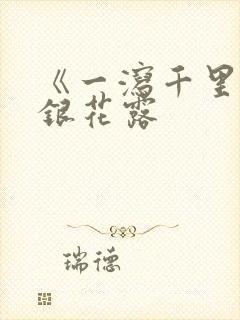 《一瀉千里
銀花露
瑞德